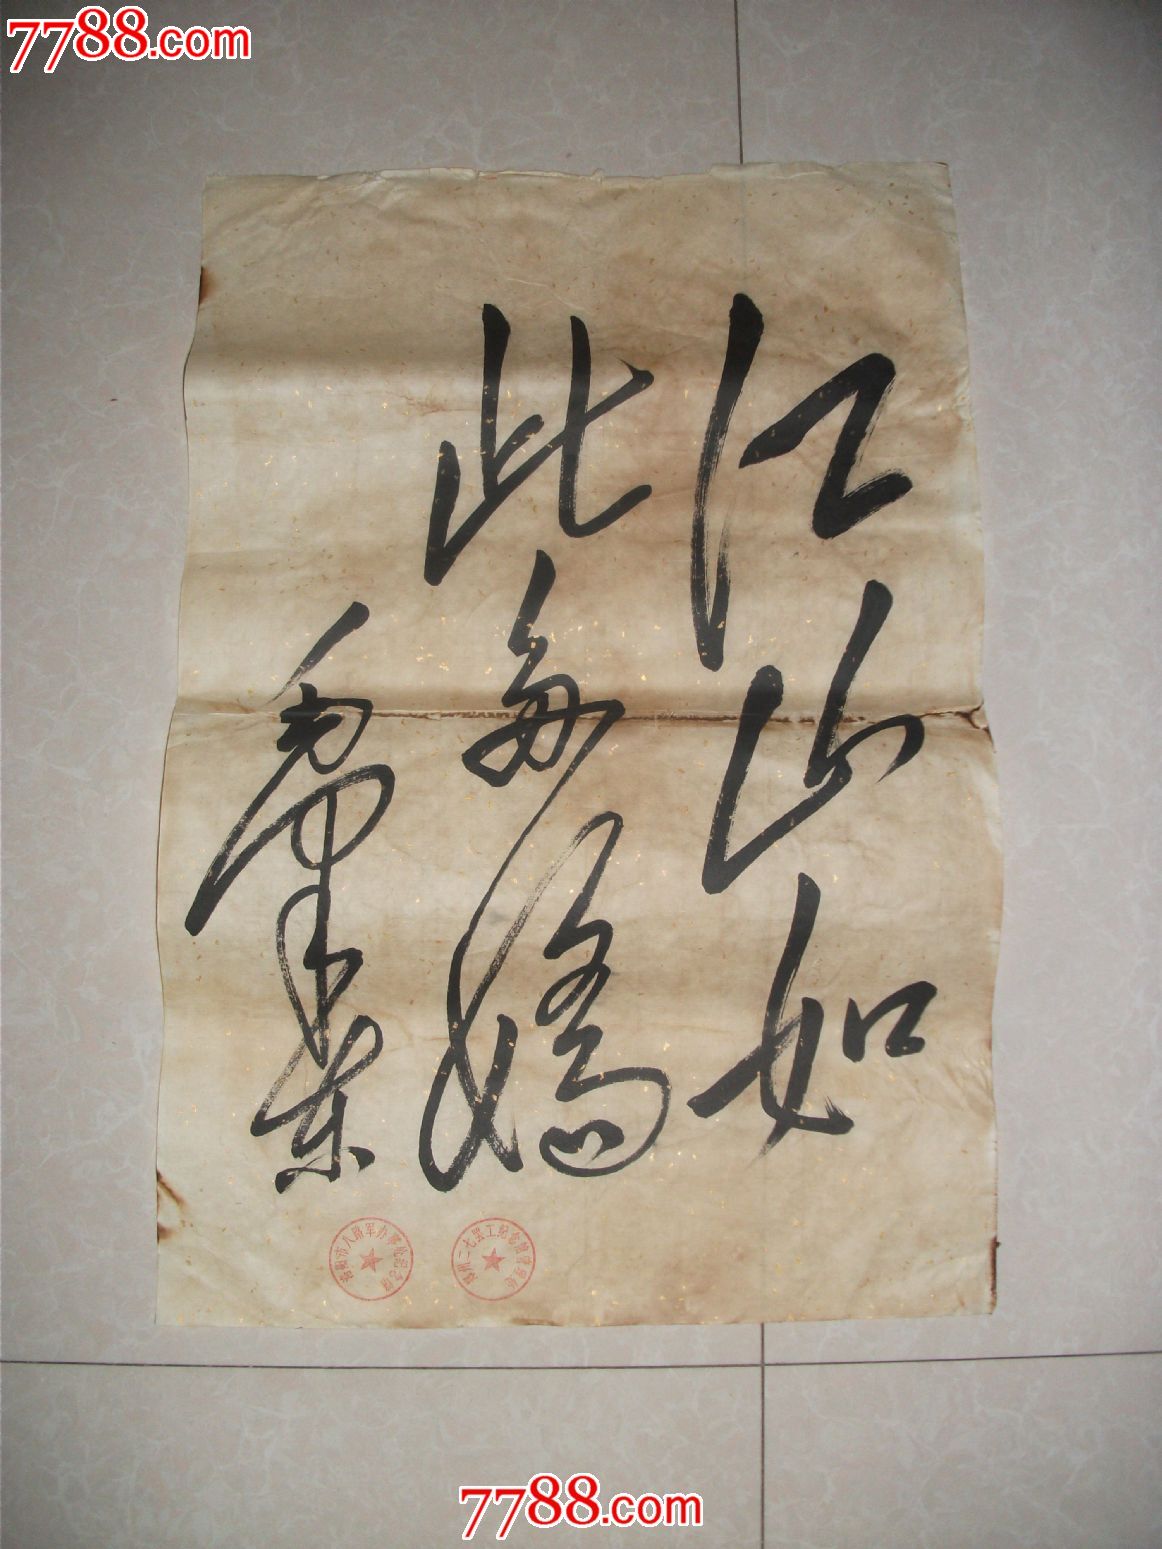 7788.com
江山如
此多娇
毛泽东
洛阳市八路军办事处纪念馆
郑州二七罢工纪念馆
7788.com